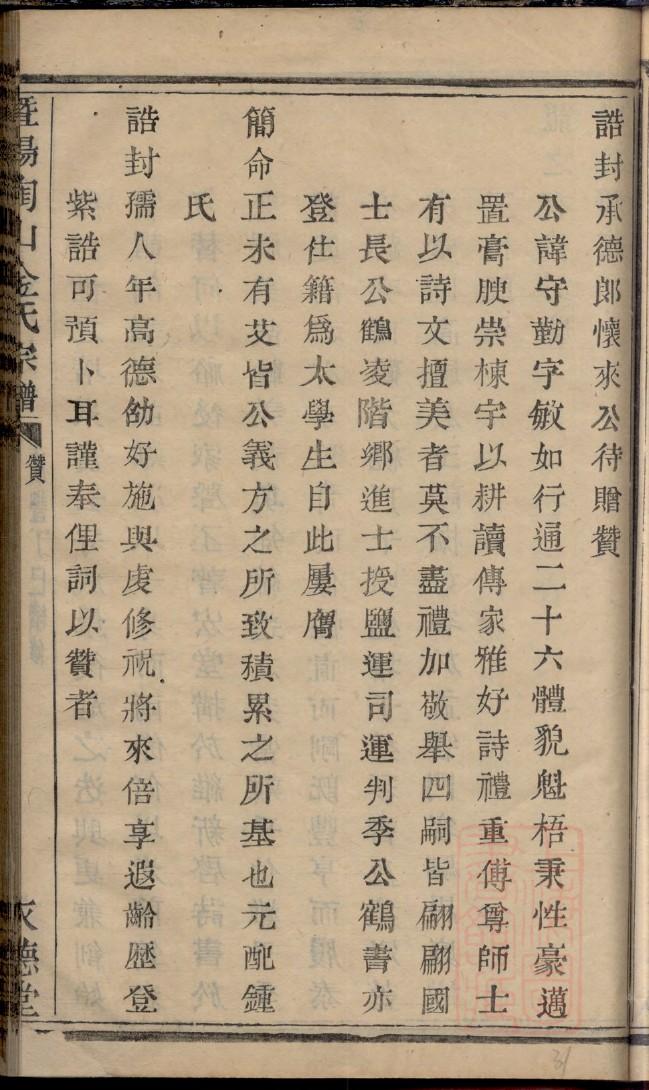 誥封承德郎懷來公待贈贊
公諱守勤字敏如行通二十六體貌魁梧秉性豪邁
置膏腴崇棟宇以耕讀傳家雅好詩禮重傅尊師士
有以詩文擅美者莫不盡禮加敬舉四嗣皆翩翩國
士長公鶴凌階鄉進士授鹽運司運判季公鶴書亦
登仕籍為太學生自此屢膺
簡命正未有艾皆公義方之所致積累之所基也元配鍾
氏
誥封孺人年高德劭好施與虔修祝將來倍享遐齡歷登
紫誥可預卜耳謹奉俚詞以贊者
暨陽陶山金氏宗譜
贊
德堂
31